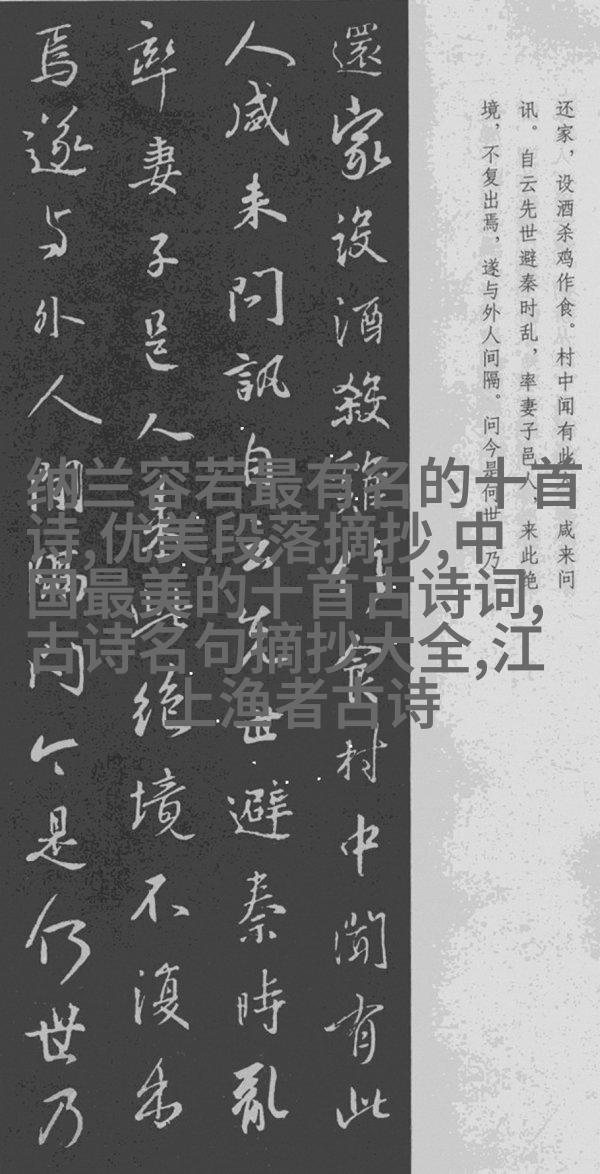 还家，设酒杀鸡作食。村中闻有此人，咸来问
讯。自云先世避秦时乱，率妻子邑人，来此绝
境，不复出焉，遂与外人间隔。问今是何世，乃
還家設酒殺雞作食村中聞有此
人咸来問訊自云先世避秦時亂
率妻子邑人来此绝境不復出
焉遂与外人間隔问今是何世乃
纳兰容若最有名的十首
诗,优美段落摘抄,中
国最美的十首古诗词,
古诗名句摘抄大全,江
上渔者古诗